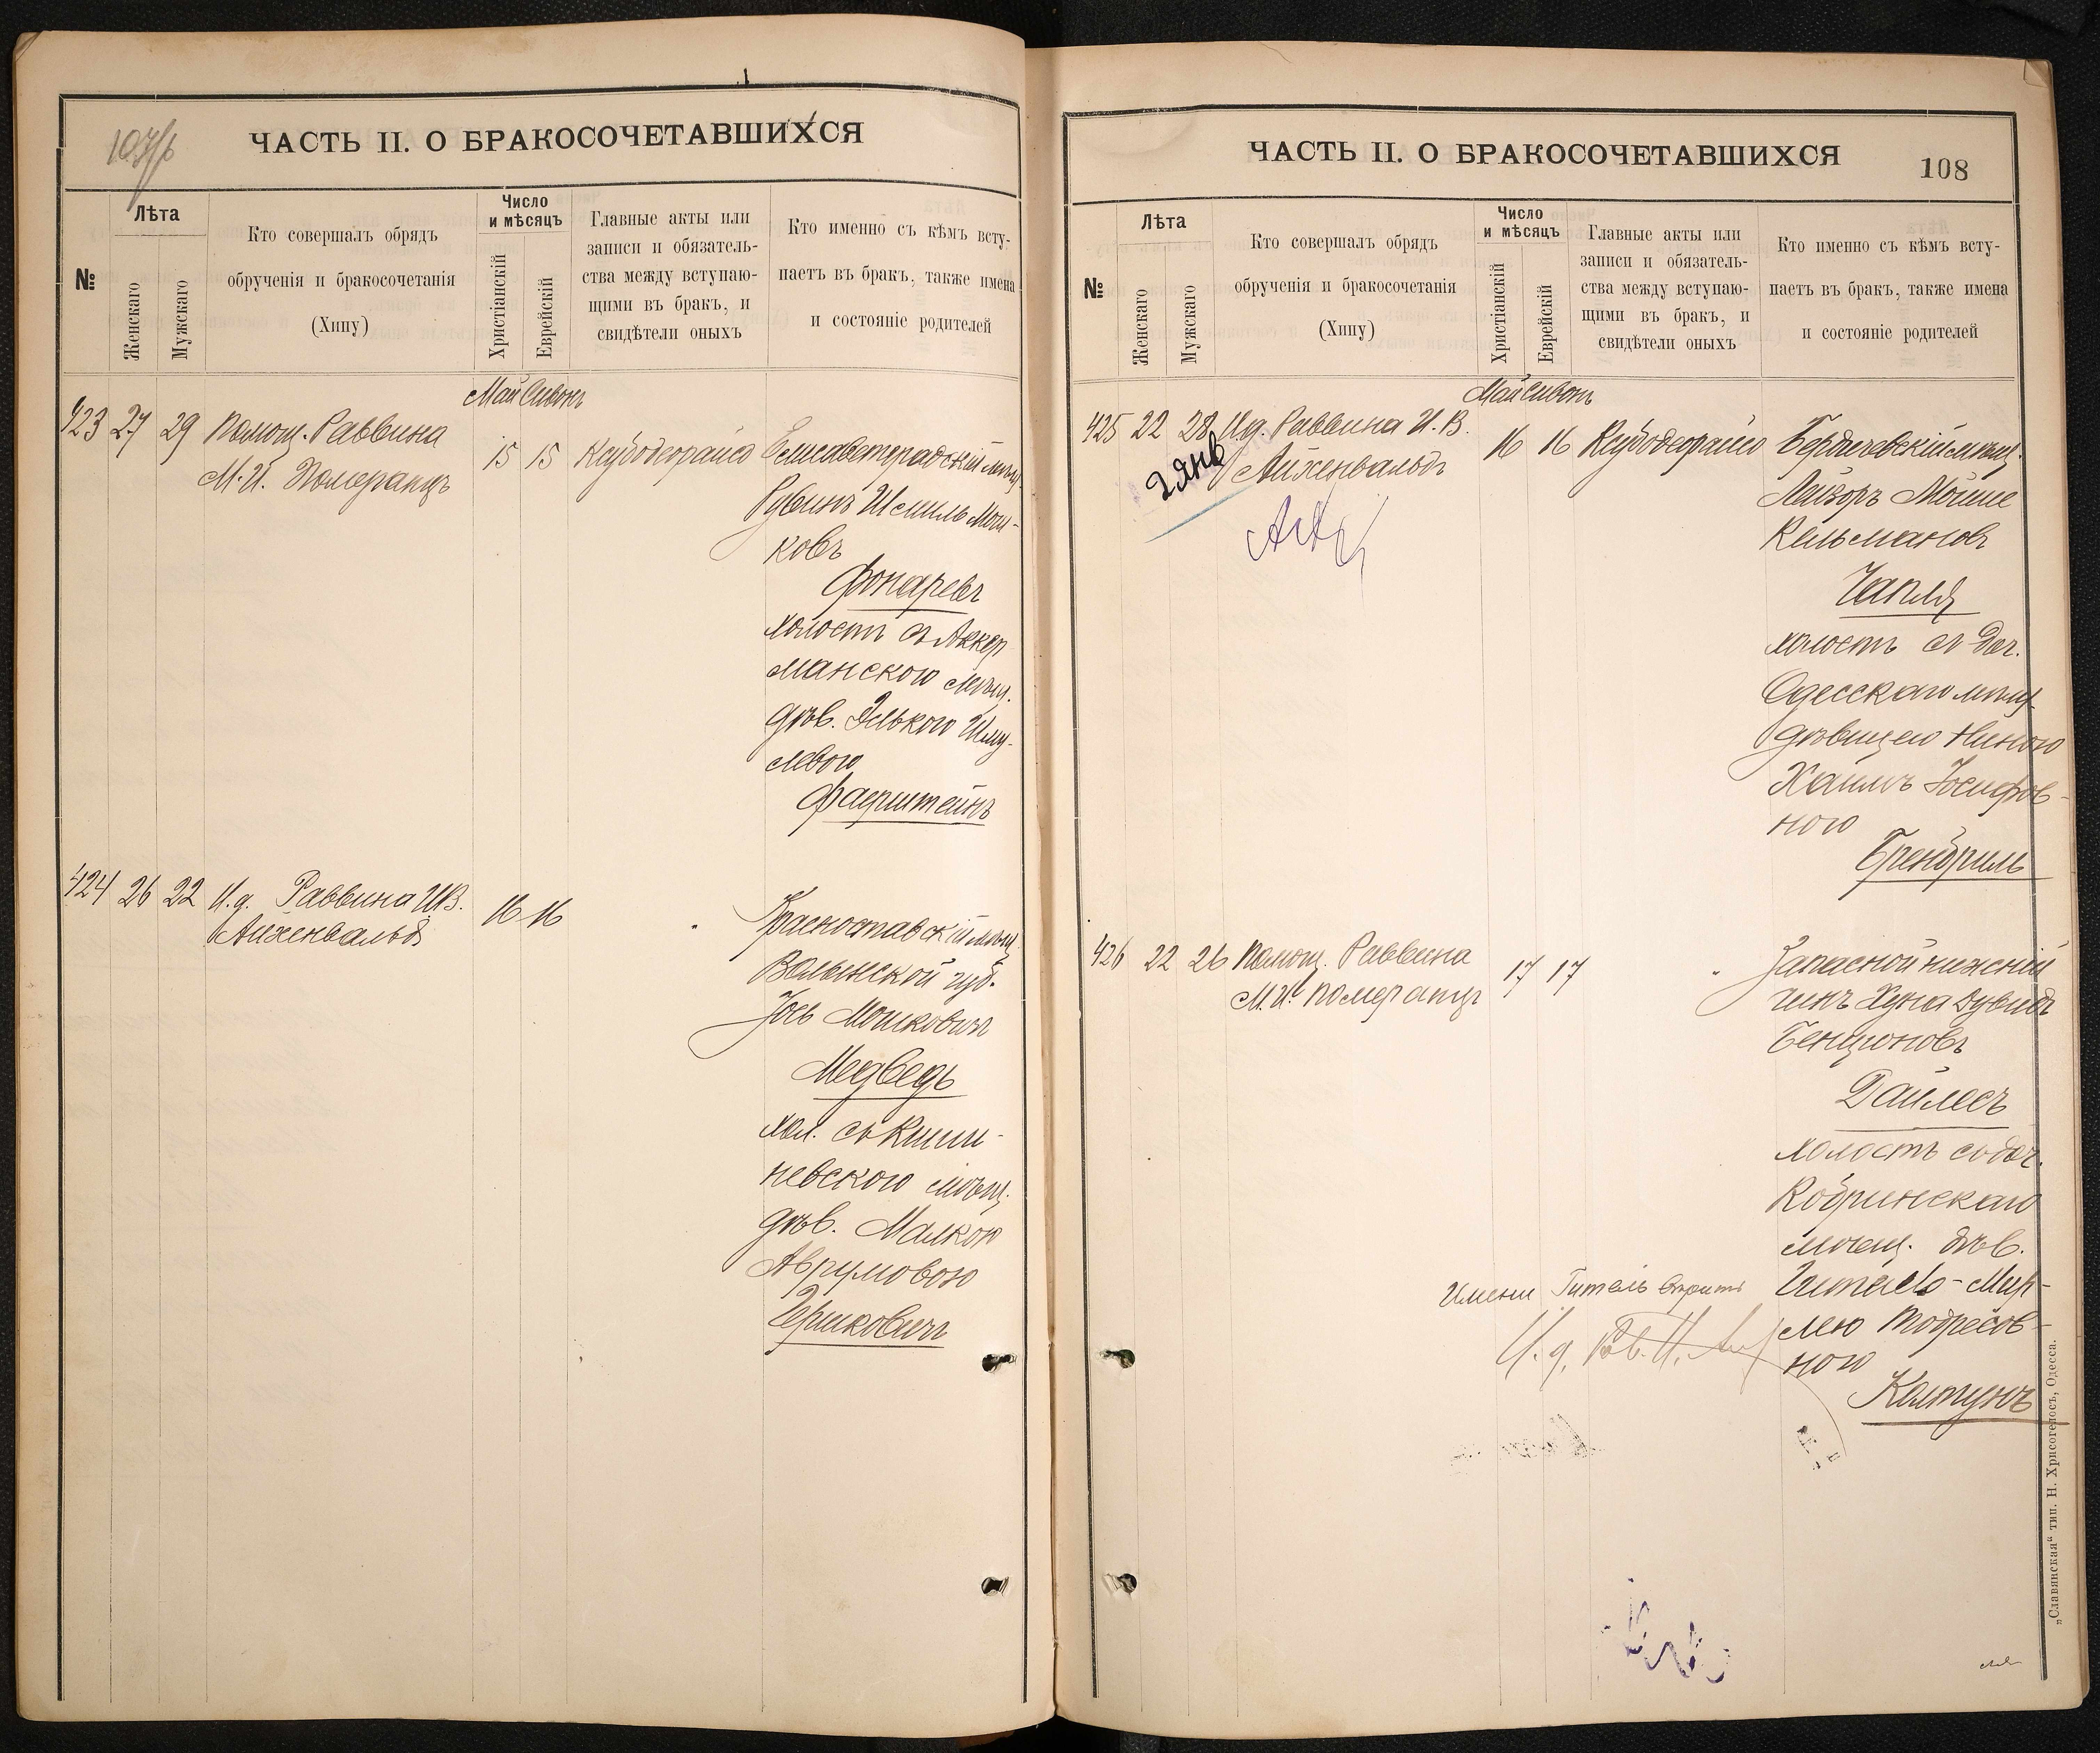 107/б
ЧАСТЬ II. О БРАКОСОЧЕТАВШИХСЯ
№
Лѣта
Женскаго
Мужскаго
Кто совершалъ обрядъ
обрученія и бракосочетанія
(Хипу)
Число
и мѣсяцъ
Христіанскій
Еврейскій
Главные акты или
записи и обязатель-
ства между вступаю-
щими въ бракъ, и
свидѣтели оныхъ
Кто именно съ кѣмъ всту-
паетъ въ бракъ, также имена
и состояніе родителей
Май Сивонъ
423 27 29 Помощ. Раввина
М. И. Померанцъ
15 15
Елисаветградскій мѣщ.
Рувинъ Шмиль Мош-
ковъ
Фонаревъ
холостъ съ Аккер
манскою мѣщ.
дѣв. Элькою Шму-
левою
Фаерштейнъ
424 26 22 И. д. Раввина И.В.
Айхенвальдъ
16 16
Красноставскій мѣщ
Волынской губ.
Іось Мошковичъ
Медведь
хол. съ Киши-
невскою мѣщ.
дѣв. Малкою
Аврумовою
Гершковичъ
ЧАСТЬ II. О БРАКОСОЧЕТАВШИХСЯ
108
№
Лѣта
Женскаго
Мужскаго
Кто совершалъ обрядъ
обрученія и бракосочетанія
(Хипу)
Число
и мѣсяцъ
Христіанскій
Еврейскій
Главные акты или
записи и обязатель-
ства между вступаю-
щими въ бракъ, и
свидѣтели оныхъ
Кто именно съ кѣмъ всту-
паетъ въ бракъ, также имена
и состояніе родителей
Май Сивонъ
425 22 28 И.д. Раввина И. В.
Айхенвальдъ
2 янв
16 16
Бердичевскій мѣщ.
Лейзоръ Мойше
Кельмановъ
Чапля
холостъ съ доч.
Одесскаго мѣщ.
дѣвицею Ниною
Хаимъ Іосифов-
ною
426 22 26 Помощ. Раввина
М. И. Померанцъ
17 17
Запасной нижній
чинъ Хуна Дувидъ
Бенціоновъ
Дайлесъ
холостъ съ доч.
Кобринскаго
мѣщ. дѣв.
Гитель-Мир-
лею Тодресов-
ною
Колтунъ
Имени Гитель
И. д. Рав.
„Славянская“ тип. Н. Хрисогелосъ, Одесса.